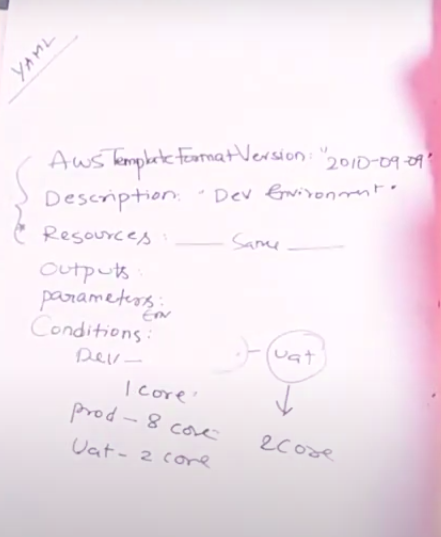 YAML
AwsTemplateFormatVersion: "2010-09-09"
Description: "Dev Environment"
Resources: ____ Same ____
Outputs:
parameters:
Env
Conditions:
Dev - uat
1 core
prod - 8 core
Uat - 2 core 2 Core